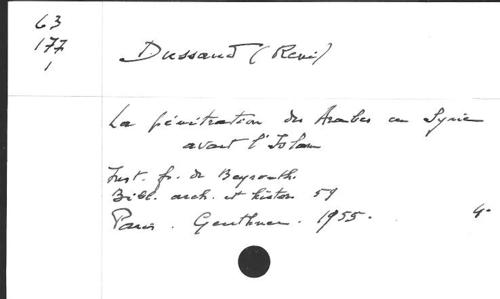 63
177
1
Dussaud (René)
La pénétration des Arabes en Syrie
avant l'Islam
Inst. fr. de Beyrouth.
Bibl. arch. et histor 59
Paris. Geuthner. 1955. 4°